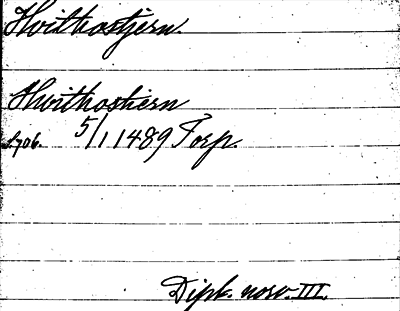 Hvithostjern.
Hwithostiern
s.706. 5/1 1489 Torp.
Dipl. norv. III.